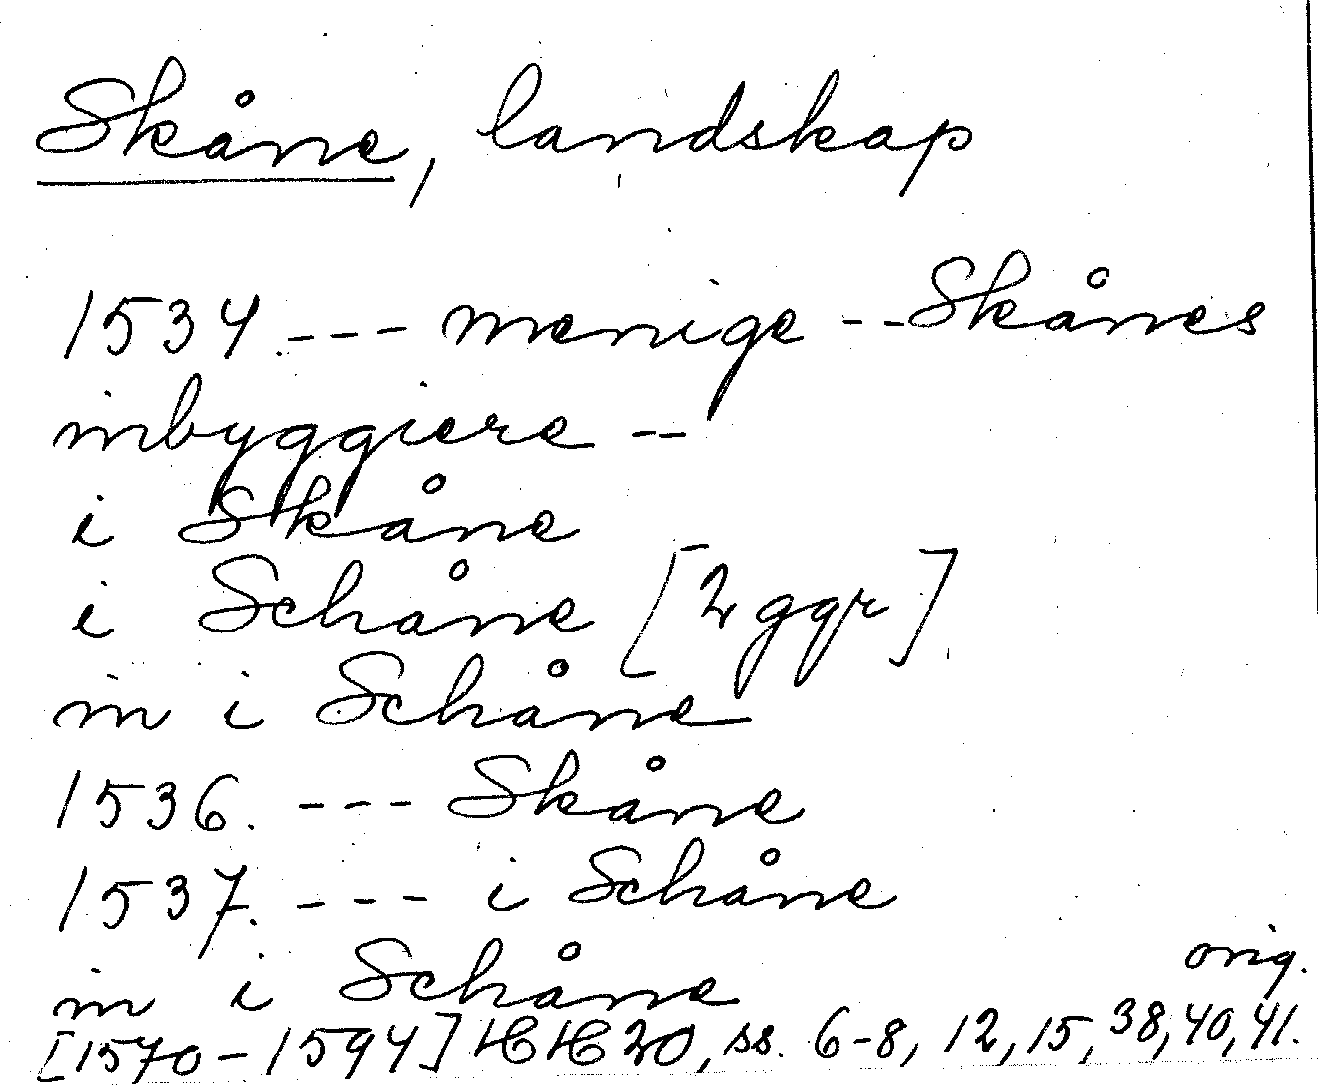 Skåne, landskap
1534. --- menige -- Skånes
inbyggiere --
i Skåne
i Schåne [2 ggr]
in i Schåne
1536. --- Skåne
1537. --- i Schåne
in i Schåne
orig.
[1570-1594] HH 20, ss. 6-8, 12, 15, 38, 40, 41.